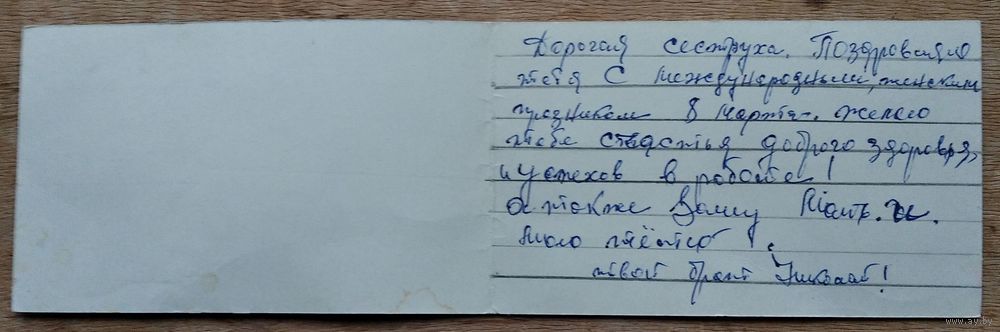 Дорогая сеструха. Поздравляю
тебя с международным, женским
празником 8 марта. желаю
тебе счастья доброго здоровья,
и успехов в работе!
а также Вашу
твой брат Николай!
www.ay.by